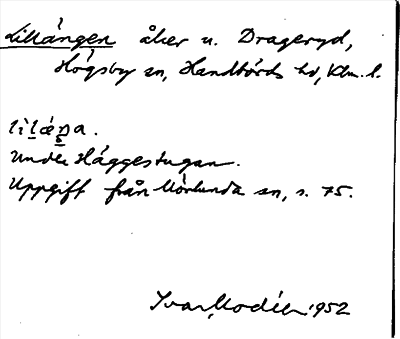 Lillängen åker u. Drageryd,
Högsby sn, Handbörds hd, Klm. l.
lìlǽŋa.
Under Häggestugan.
Uppgift från Mörlunda sn, s. 75.
Ivar Modéer 1952